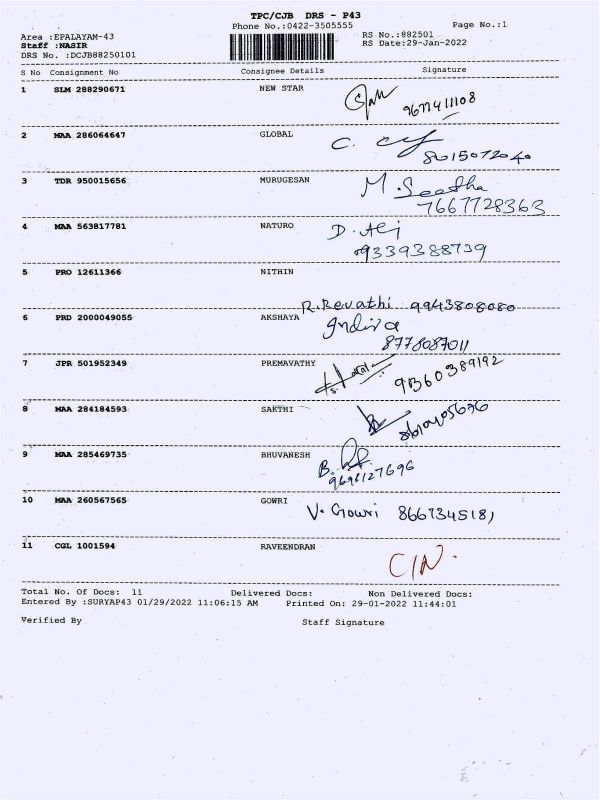 TPC/CJB DRS - P43
Phone No.:0422-3505555
Page No.:1
Area :EPALAYAM-43
RS No.:882501
Staff :NASIR
RS Date:29-Jan-2022
DRS No. :DCJB88250101
S No Consignment No Consignee Details Signature
1 SLM 288290671 NEW STAR
9677411108
2 MAA 286064647 GLOBAL C.
8015072040
3 TDR 950015656 MURUGESAN M. Seetha
7667728363
4 MAA 563817781 NATURO D. Ali
9339388739
5 PRO 12611366 NITHIN
R. Revathi 9943808080
6 PRD 2000049055 AKSHAYA Indira
8778087011
7 JPR 501952349 PREMAVATHY
9360389192
8 MAA 284184593 SAKTHI
9 MAA 285469735 BHUVANESH B.
9698127696
10 MAA 260567565 GOWRI V. Gowri 8667345181
11 CGL 1001594 RAVEENDRAN C/N.
Total No. Of Docs: 11 Delivered Docs: Non Delivered Docs:
Entered By :SURYAP43 01/29/2022 11:06:15 AM Printed On: 29-01-2022 11:44:01
Verified By Staff Signature